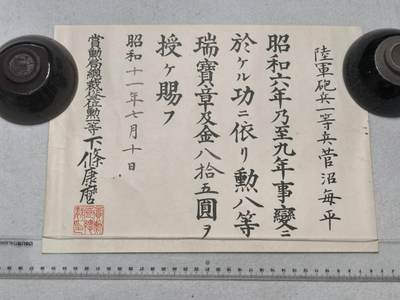 陸軍砲兵一等兵菅沼每平
昭和六年乃至九年事變ニ
於ケル功ニ依リ勲八等
瑞寶章及金八拾五圓ヲ
授ケ賜フ
昭和十一年七月十日
賞勳局總裁從位勲等下條康麿